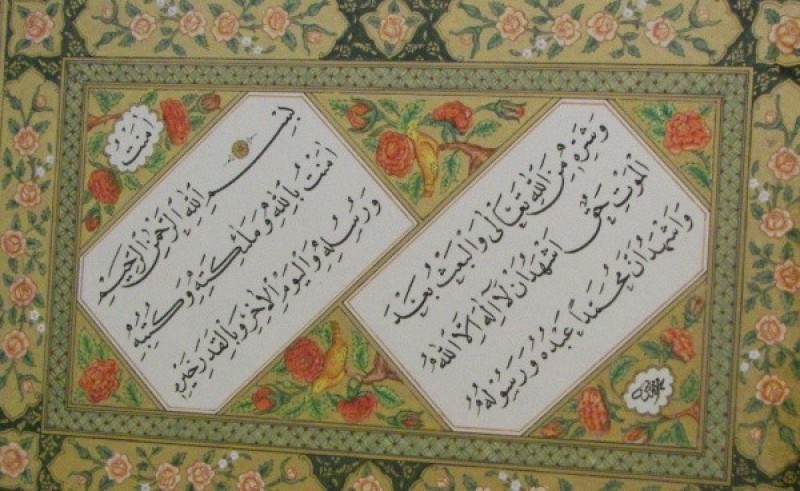 اٰمَنْتُ
بِسْمِ اللهِ الرَّحْمٰنِ الرَّحِيمِ
اٰمَنْتُ بِاللهِ وَمَلٰئِكَتِهِ وَكُتُبِهِ
وَرُسُلِهِ وَالْيَوْمِ الْاٰخِرِ وَبِالْقَدَرِ خَيْرِهِ
وَشَرِّهِ مِنَ اللهِ تَعَالٰى وَالْبَعْثُ بَعْدَ
الْمَوْتِ حَقٌّ اَشْهَدُ اَنْ لَا اِلٰهَ اِلَّا اللهُ
وَاَشْهَدُ اَنَّ مُحَمَّدًا عَبْدُهُ وَرَسُولُهُ